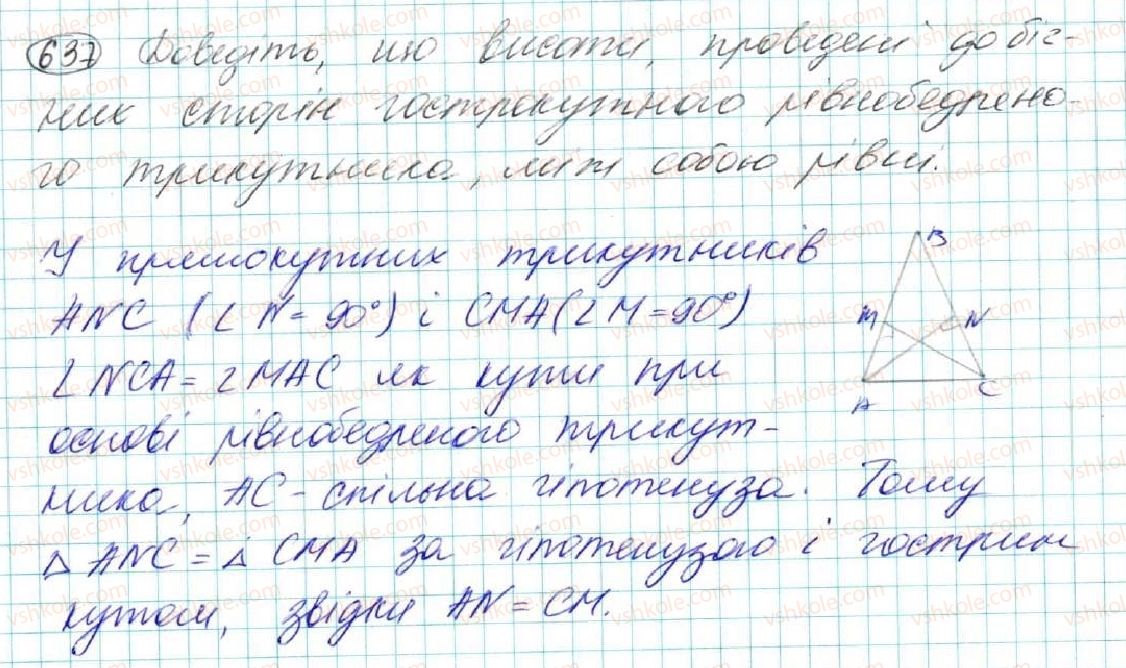 637 Доведіть, що висоти, проведені до біч-
них сторін гострокутного рівнобедрено-
го трикутника, між собою рівні.
У прямокутних трикутників
ANC (∠N = 90°) і CMA (∠M = 90°)
∠NCA = ∠MAC як кути при
основі рівнобедреного трикут-
ника, AC - спільна гіпотенуза. Тому
△ ANC = △ CMA за гіпотенузою і гострим
кутом, звідки AN = CM.
B
M
N
A
C
vshkole.com